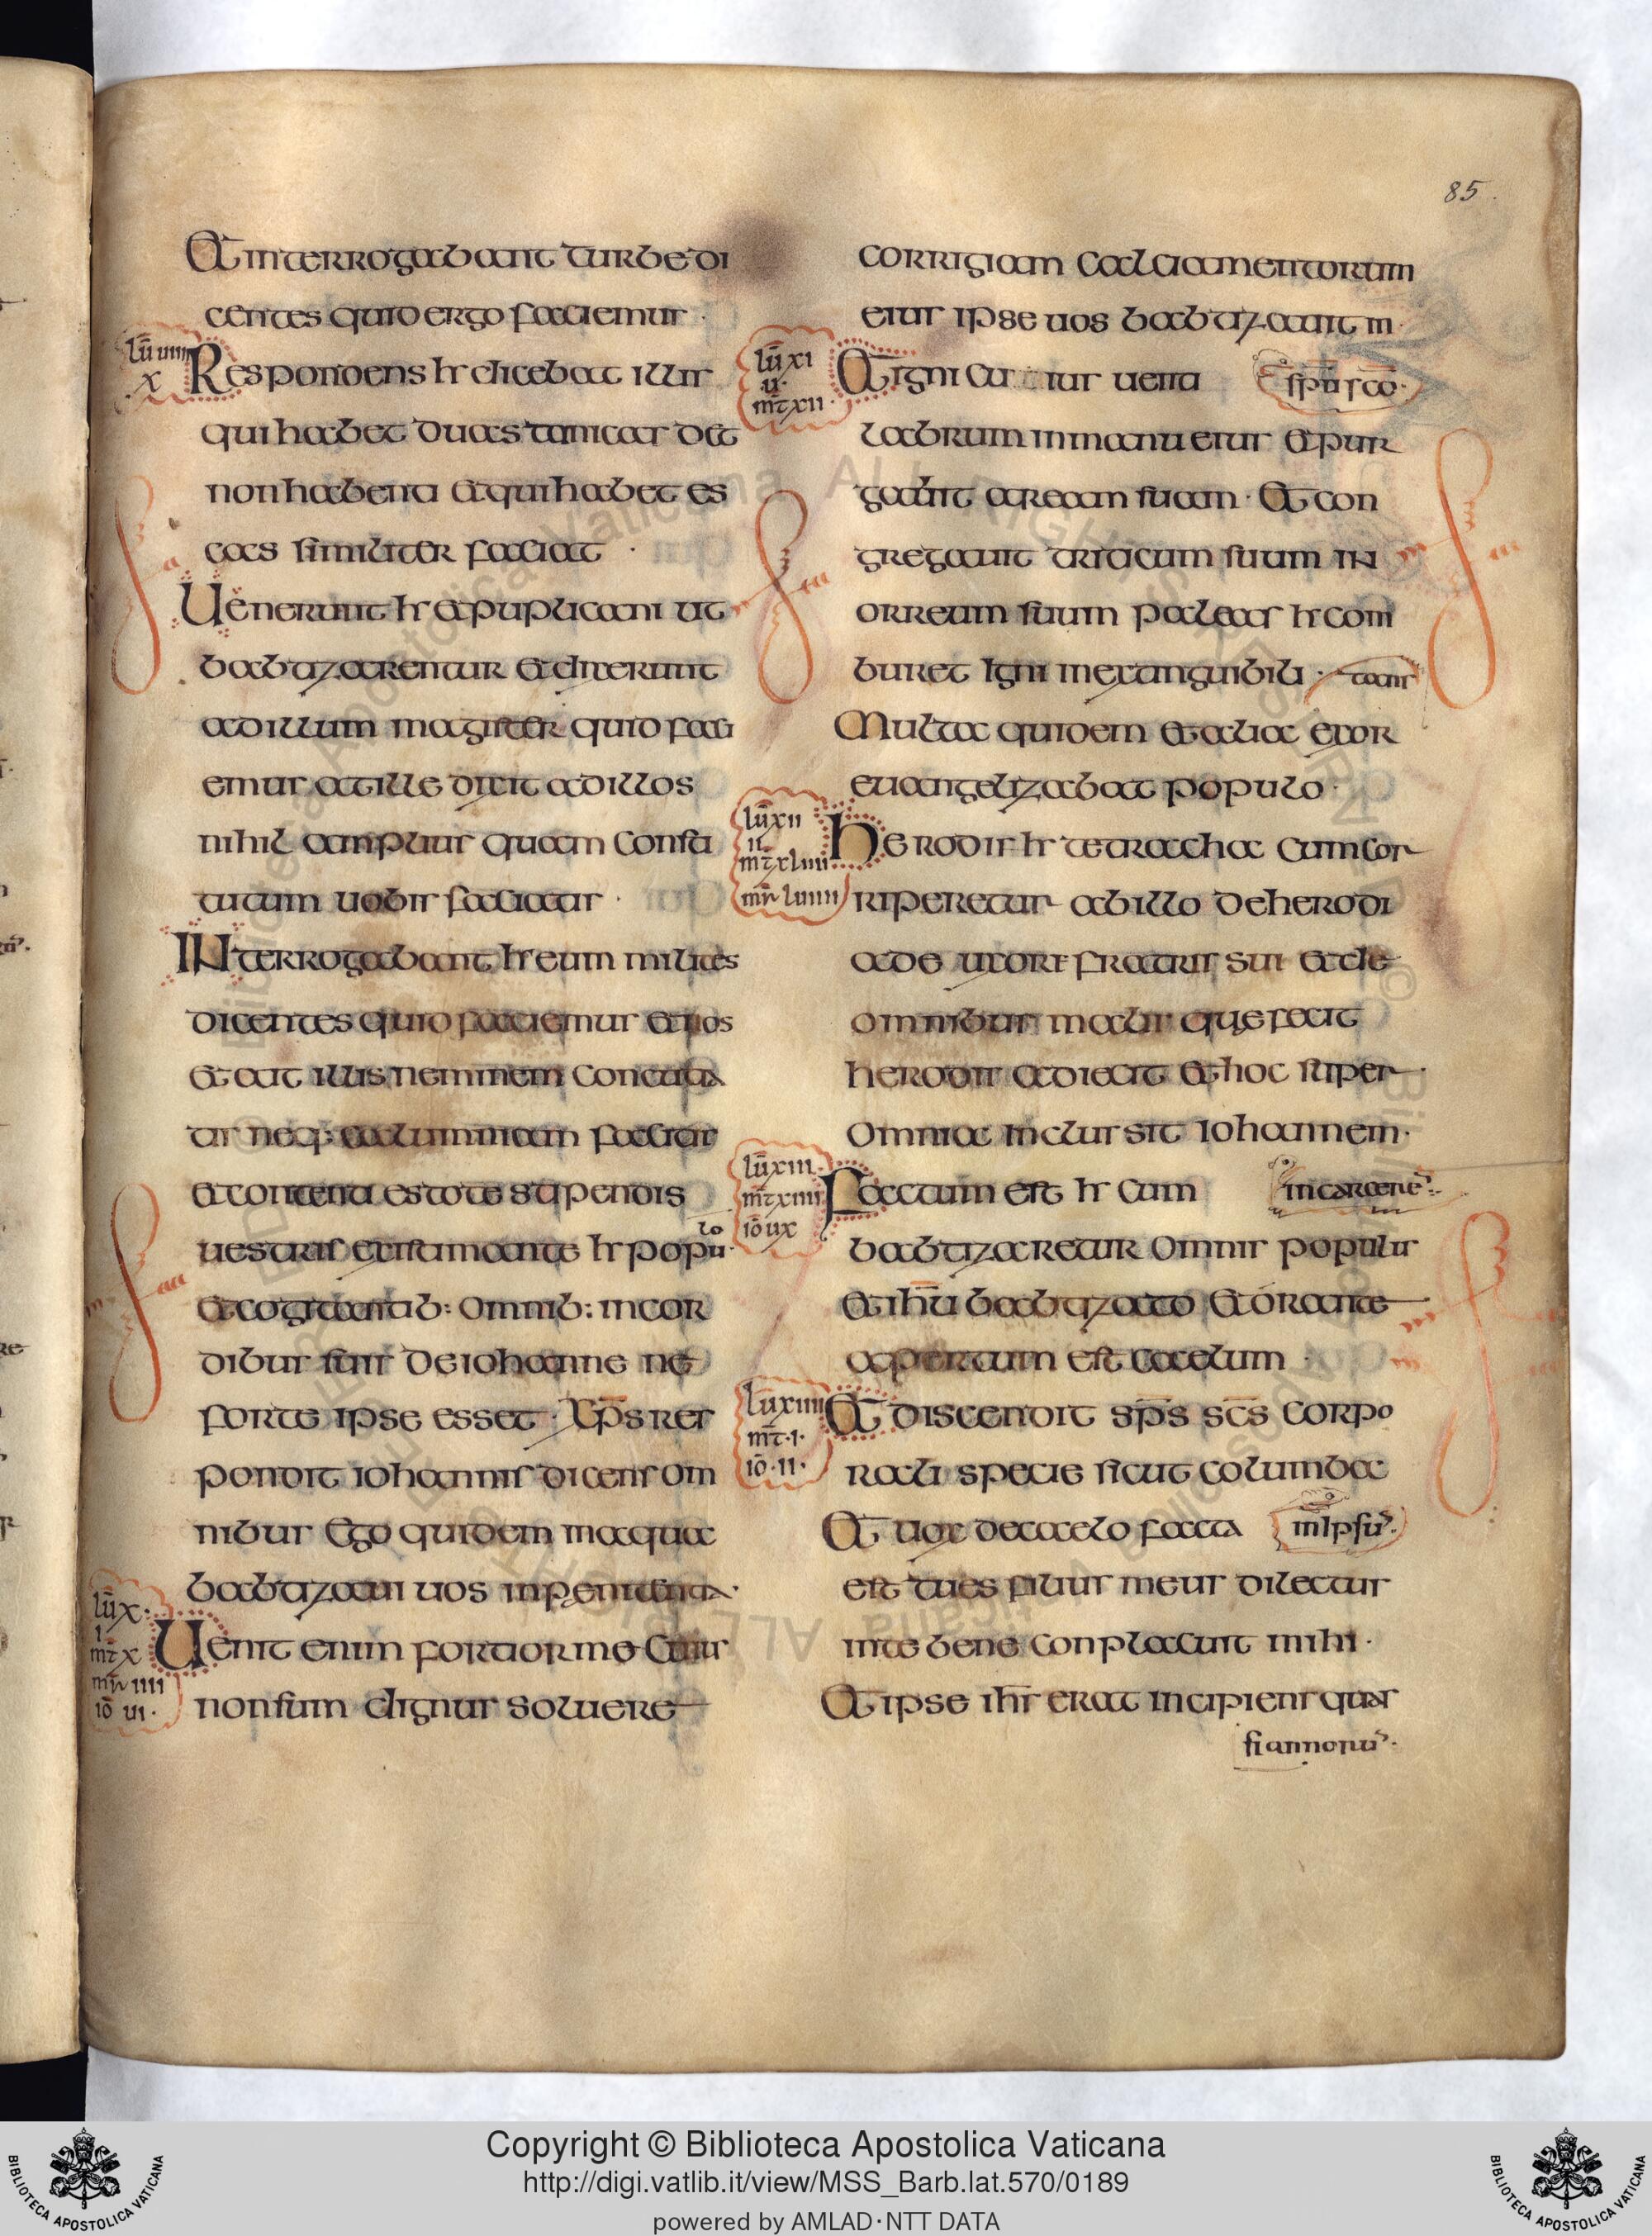 85
Et interrogabant turbe di
centes quid ergo faciemus
lū uiiii
x
Respondens hr dicebat illis
qui habet duas tunicas det
non habenti et qui habet es
cas similiter faciat ·
Uenerunt hr et puplicani ut
babtizarentur et dixerunt
ad illum magister quid faci
emus at ille dixit ad illos
nihil amplius quam consti
tutum uobis faciatis ·
INterrogabant hr eum milites
dicentes quid faciemus et nos
et ait illis neminem concutia
tis neq: calumniam faciatis
et contenti estote stipendis
uestris existimante hr popu
lo
et cogitantib: omnib: in cor
dibus suis de iohanne ne
forte ipse esset · xp̄s res
pondit iohannis dicens om
nibus ego quidem aqua
babtizaui uos in penitentia ·
lūx ·
i
mt̄ x
mr̄ iiii
iō ui ·
Uenit enim fortior me cuius
non sum dignus soluere
corrigiam calciamentorum
eius ipse uos babtizauit in ·
sp̄u sc̄o ·
lū xi
u ·
mt̄ xii ·
Et igni cu ius uenti
labrum in manu eius et pur
gabit aream suam · Et con
gregauit triticum suum IN
orreum suum paleas hr com
buret igni inextinguibili ·
Multa quidem et alia exor
tans
euangelizabat populo ·
lū xii
ii ·
mt̄ xliiii
mr̄ luiiii
Herodis hr tetrarcha cum cor
riperetur ab illo de herodi
ade uxore fratris sui et de
omnibus malis que fecit
herodis adiecit et hoc super
omnia inclussit iohannem ·
in carcere ·
lū xiii ·
mt̄ xiiii
iō ux
Factum est hr cum
babtizaretur omnis populus
et ih̄u babtizato et orante
apertum est caelum ·
lū xiiii
mt̄ · i ·
iō · ii ·
Et discendit sp̄s sc̄s corpo
rali specie sicut columba
in ipsū ·
Et uox de caelo facta
est tu es filius meus dilectus
in te bene conplacuit mihi ·
Et ipse ih̄s erat incipiens qua
si annorū ·
Copyright © Biblioteca Apostolica Vaticana
http://digi.vatlib.it/view/MSS_Barb.lat.570/0189
powered by AMLAD·NTT DATA
BIBLIOTECA APOSTOLICA VATICANA
BIBLIOTECA APOSTOLICA VATICANA